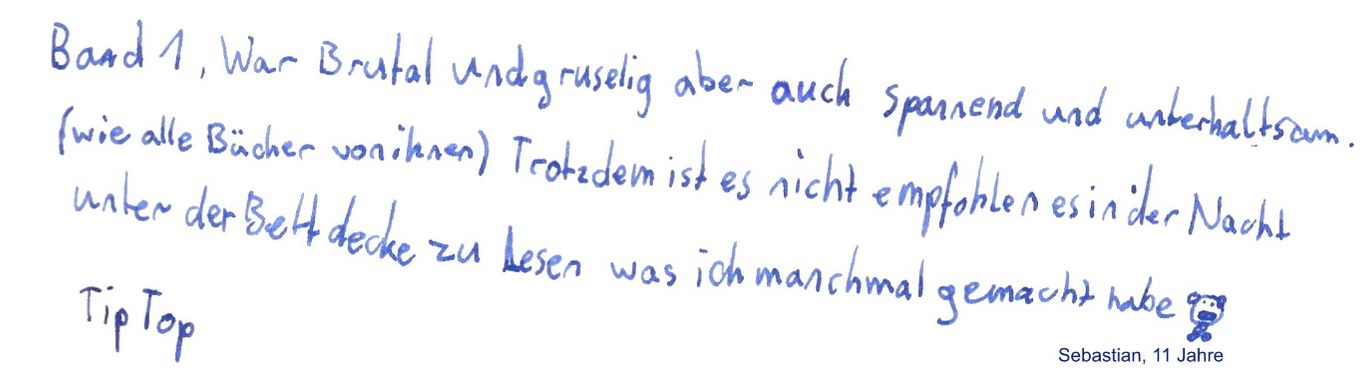 Band 1, War Brutal und gruselig aber auch spannend und unterhaltsam.
(wie alle Bücher von ihnen) Trotzdem ist es nicht empfohlen es in der Nacht
unter der Bettdecke zu Lesen was ich manchmal gemacht habe
Tip Top
Sebastian, 11 Jahre